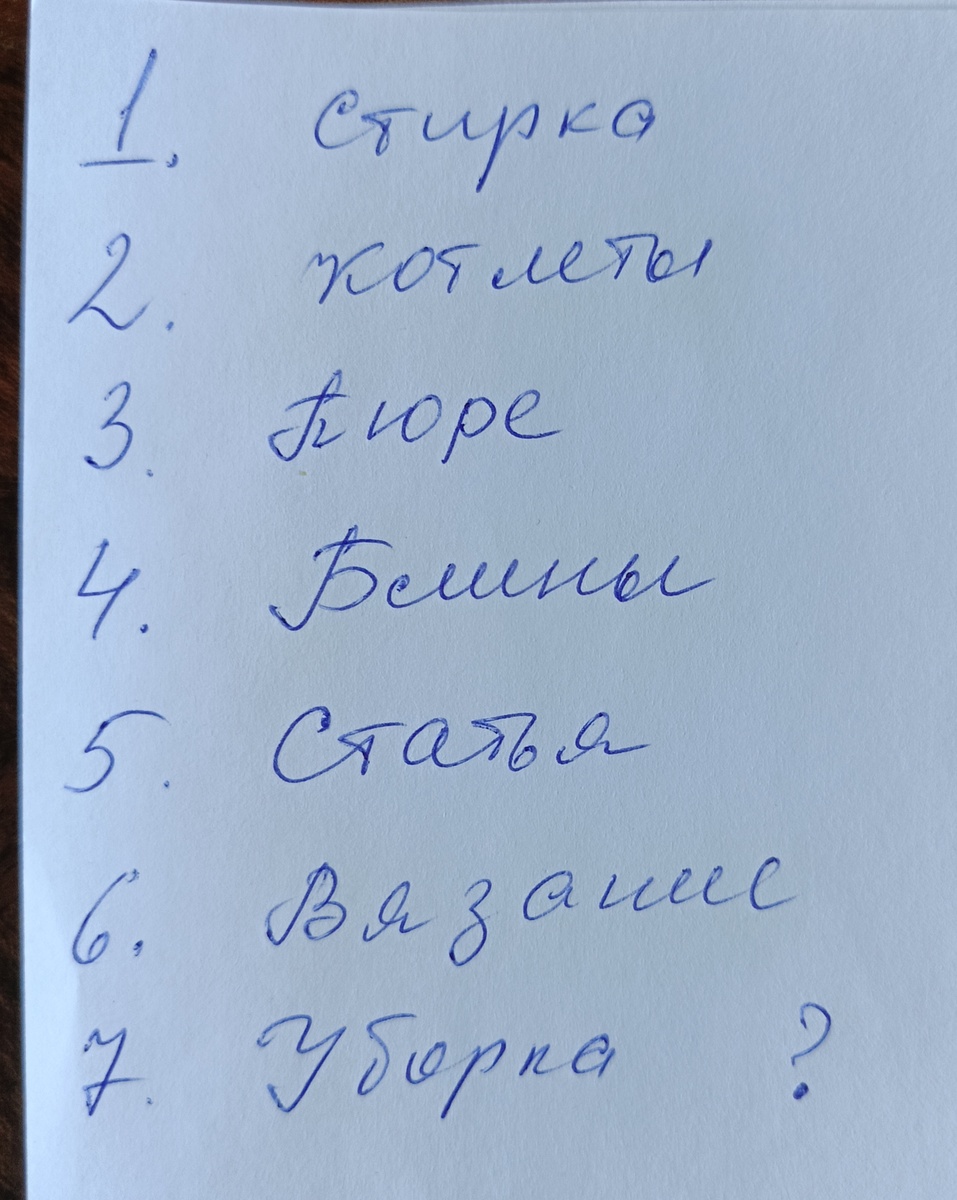 1. Стирка
2. Котлеты
3. Пюре
4. Блины
5. Статья
6. Вязание
7. Уборка ?